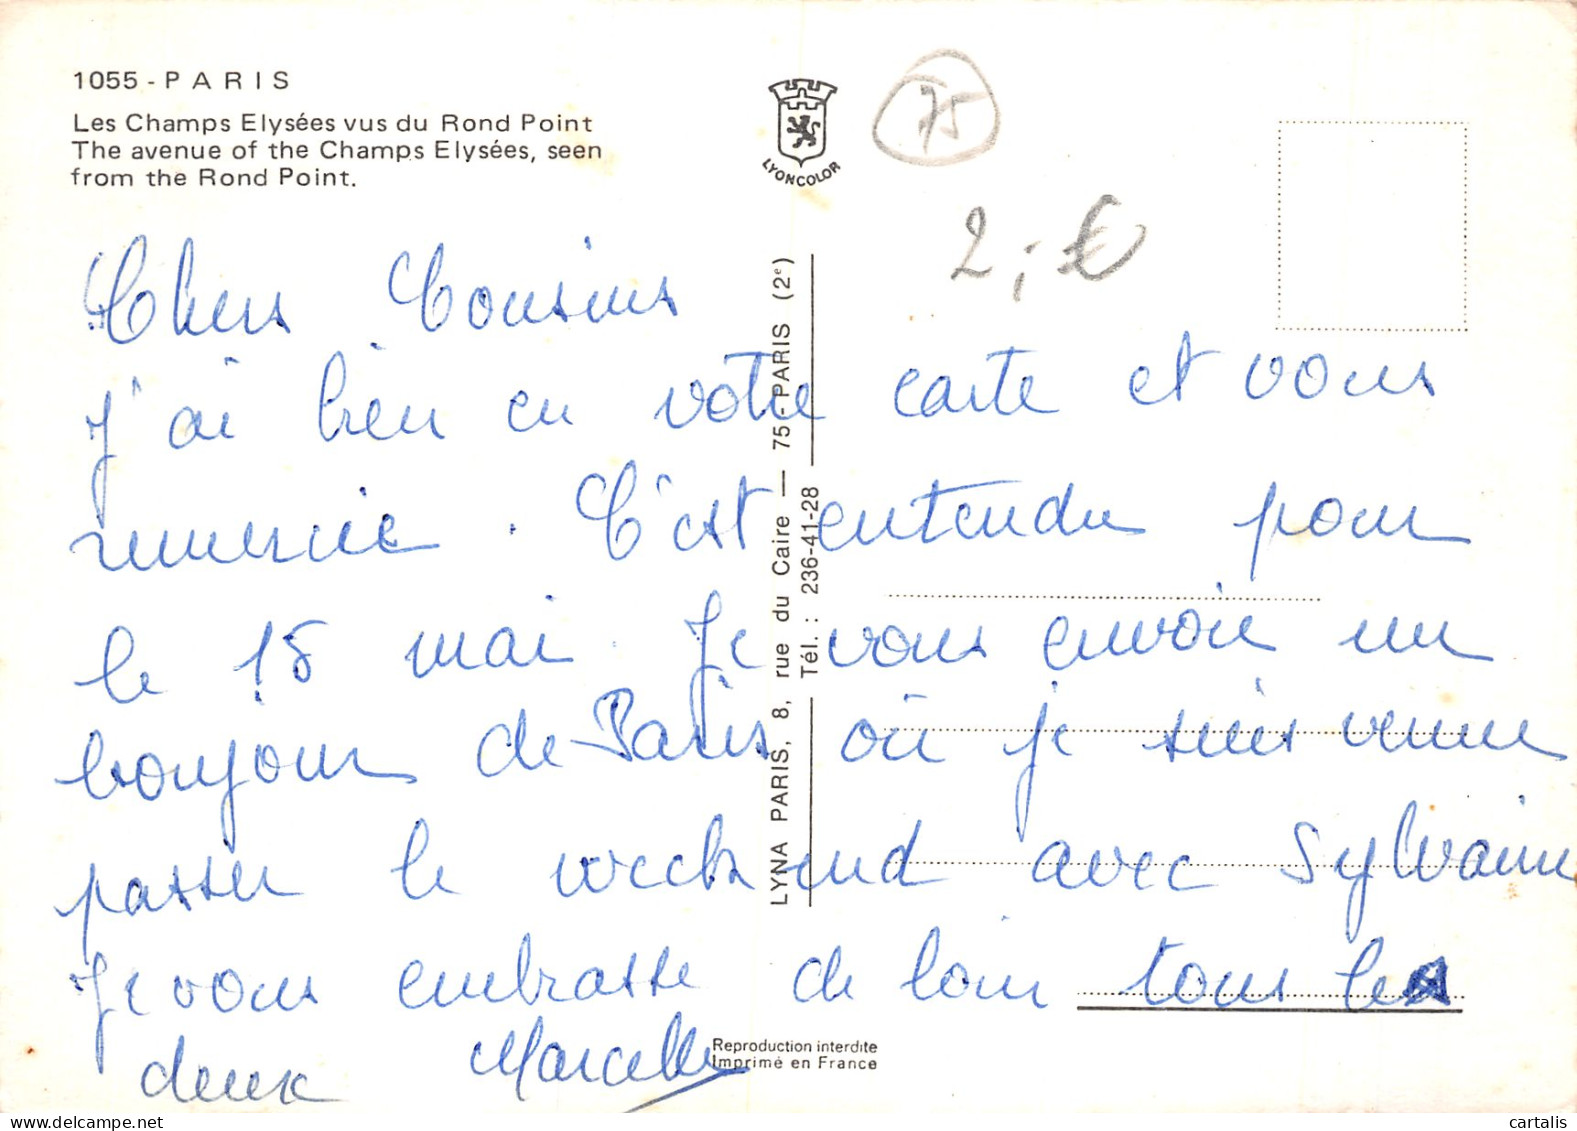 1055 - PARIS
Les Champs Elysées vus du Rond Point
The avenue of the Champs Elysées, seen
from the Rond Point.
LYONCOLOR
75
2,- €
Chers Cousins
J'ai bien eu votre carte et vous
remercie. C'est entendu pour
le 18 mai. Je vous envoie un
bonjour de Paris où je suis venue
passer le week end avec Sylvaine
Je vous embrasse de loin tous les
deux Marcelle
LYNA PARIS, 8, rue du Caire — 75 - PARIS (2e)
Tél. : 236-41-28
Reproduction interdite
Imprimé en France
cartalis